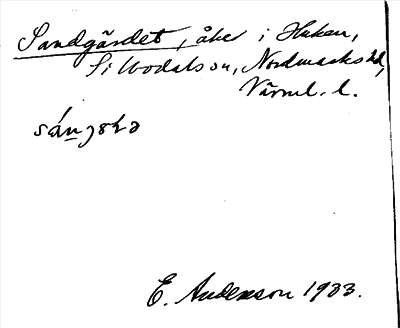 Sandgärdet, åker i Haken,
Sillbodals sn, Nordmarks hd,
Värml. l.
E. Anderson 1933.